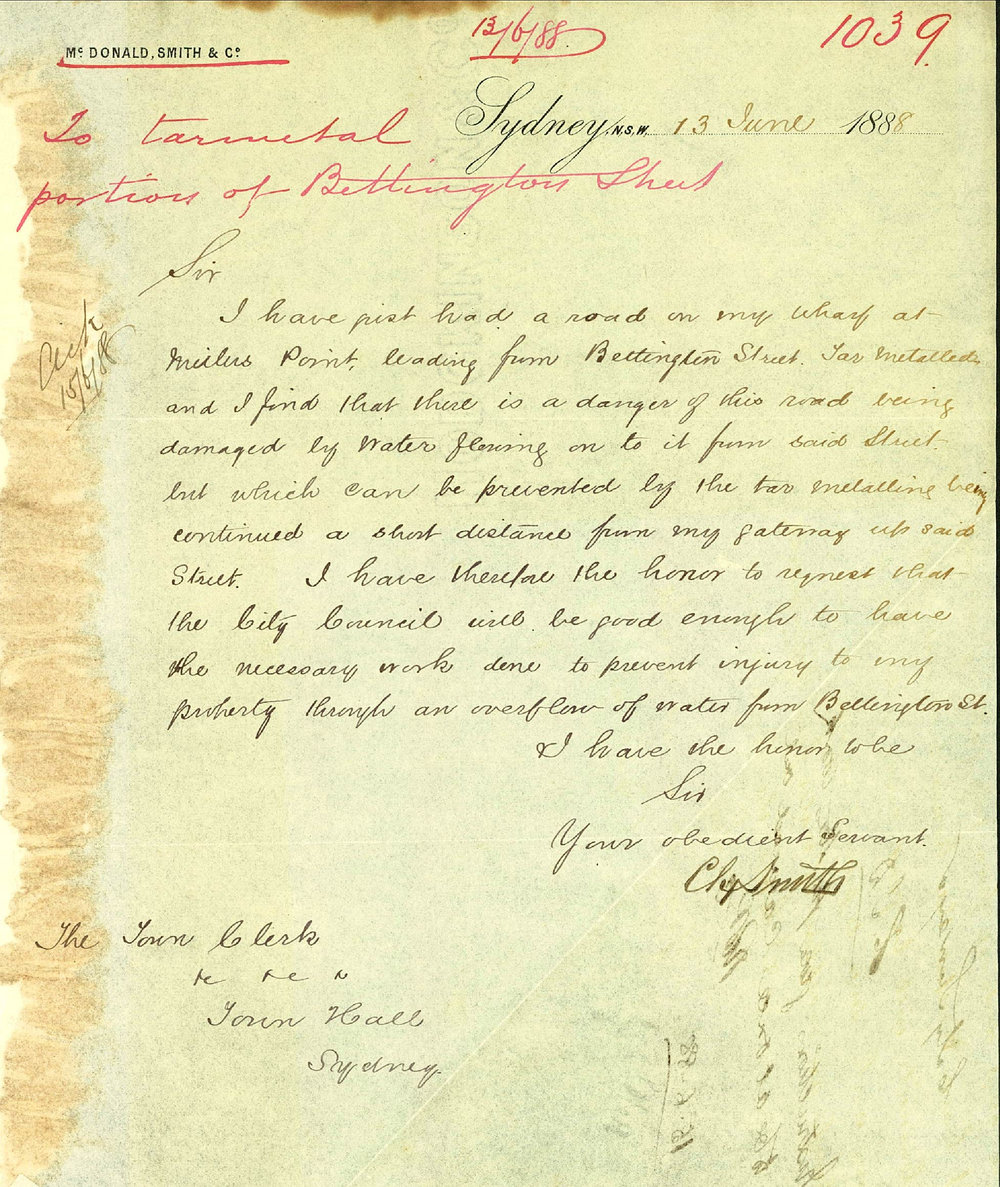 13/6/88.
1039.
Mc DONALD, SMITH & Co
Sydney, N.S.W. 13 June 1888
To tarmetal
portion of Bettington Street
Sir
I have just had a road on my wharf at
Millers Point, leading from Bettington Street. Tar Metalled
and I find that there is a danger of this road being
damaged by Water flowing on to it from said Street
but which can be prevented by the tar metalling being
continued a short distance from my gateway up said
Street. I have therefore the honor to request that
the City Council will be good enough to have
the necessary work done to prevent injury to my
property through an overflow of water from Bettington St.
I have the honor to be
Sir
Your obedient Servant.
Smith
15/6/88
The Town Clerk
Town Hall
Sydney.